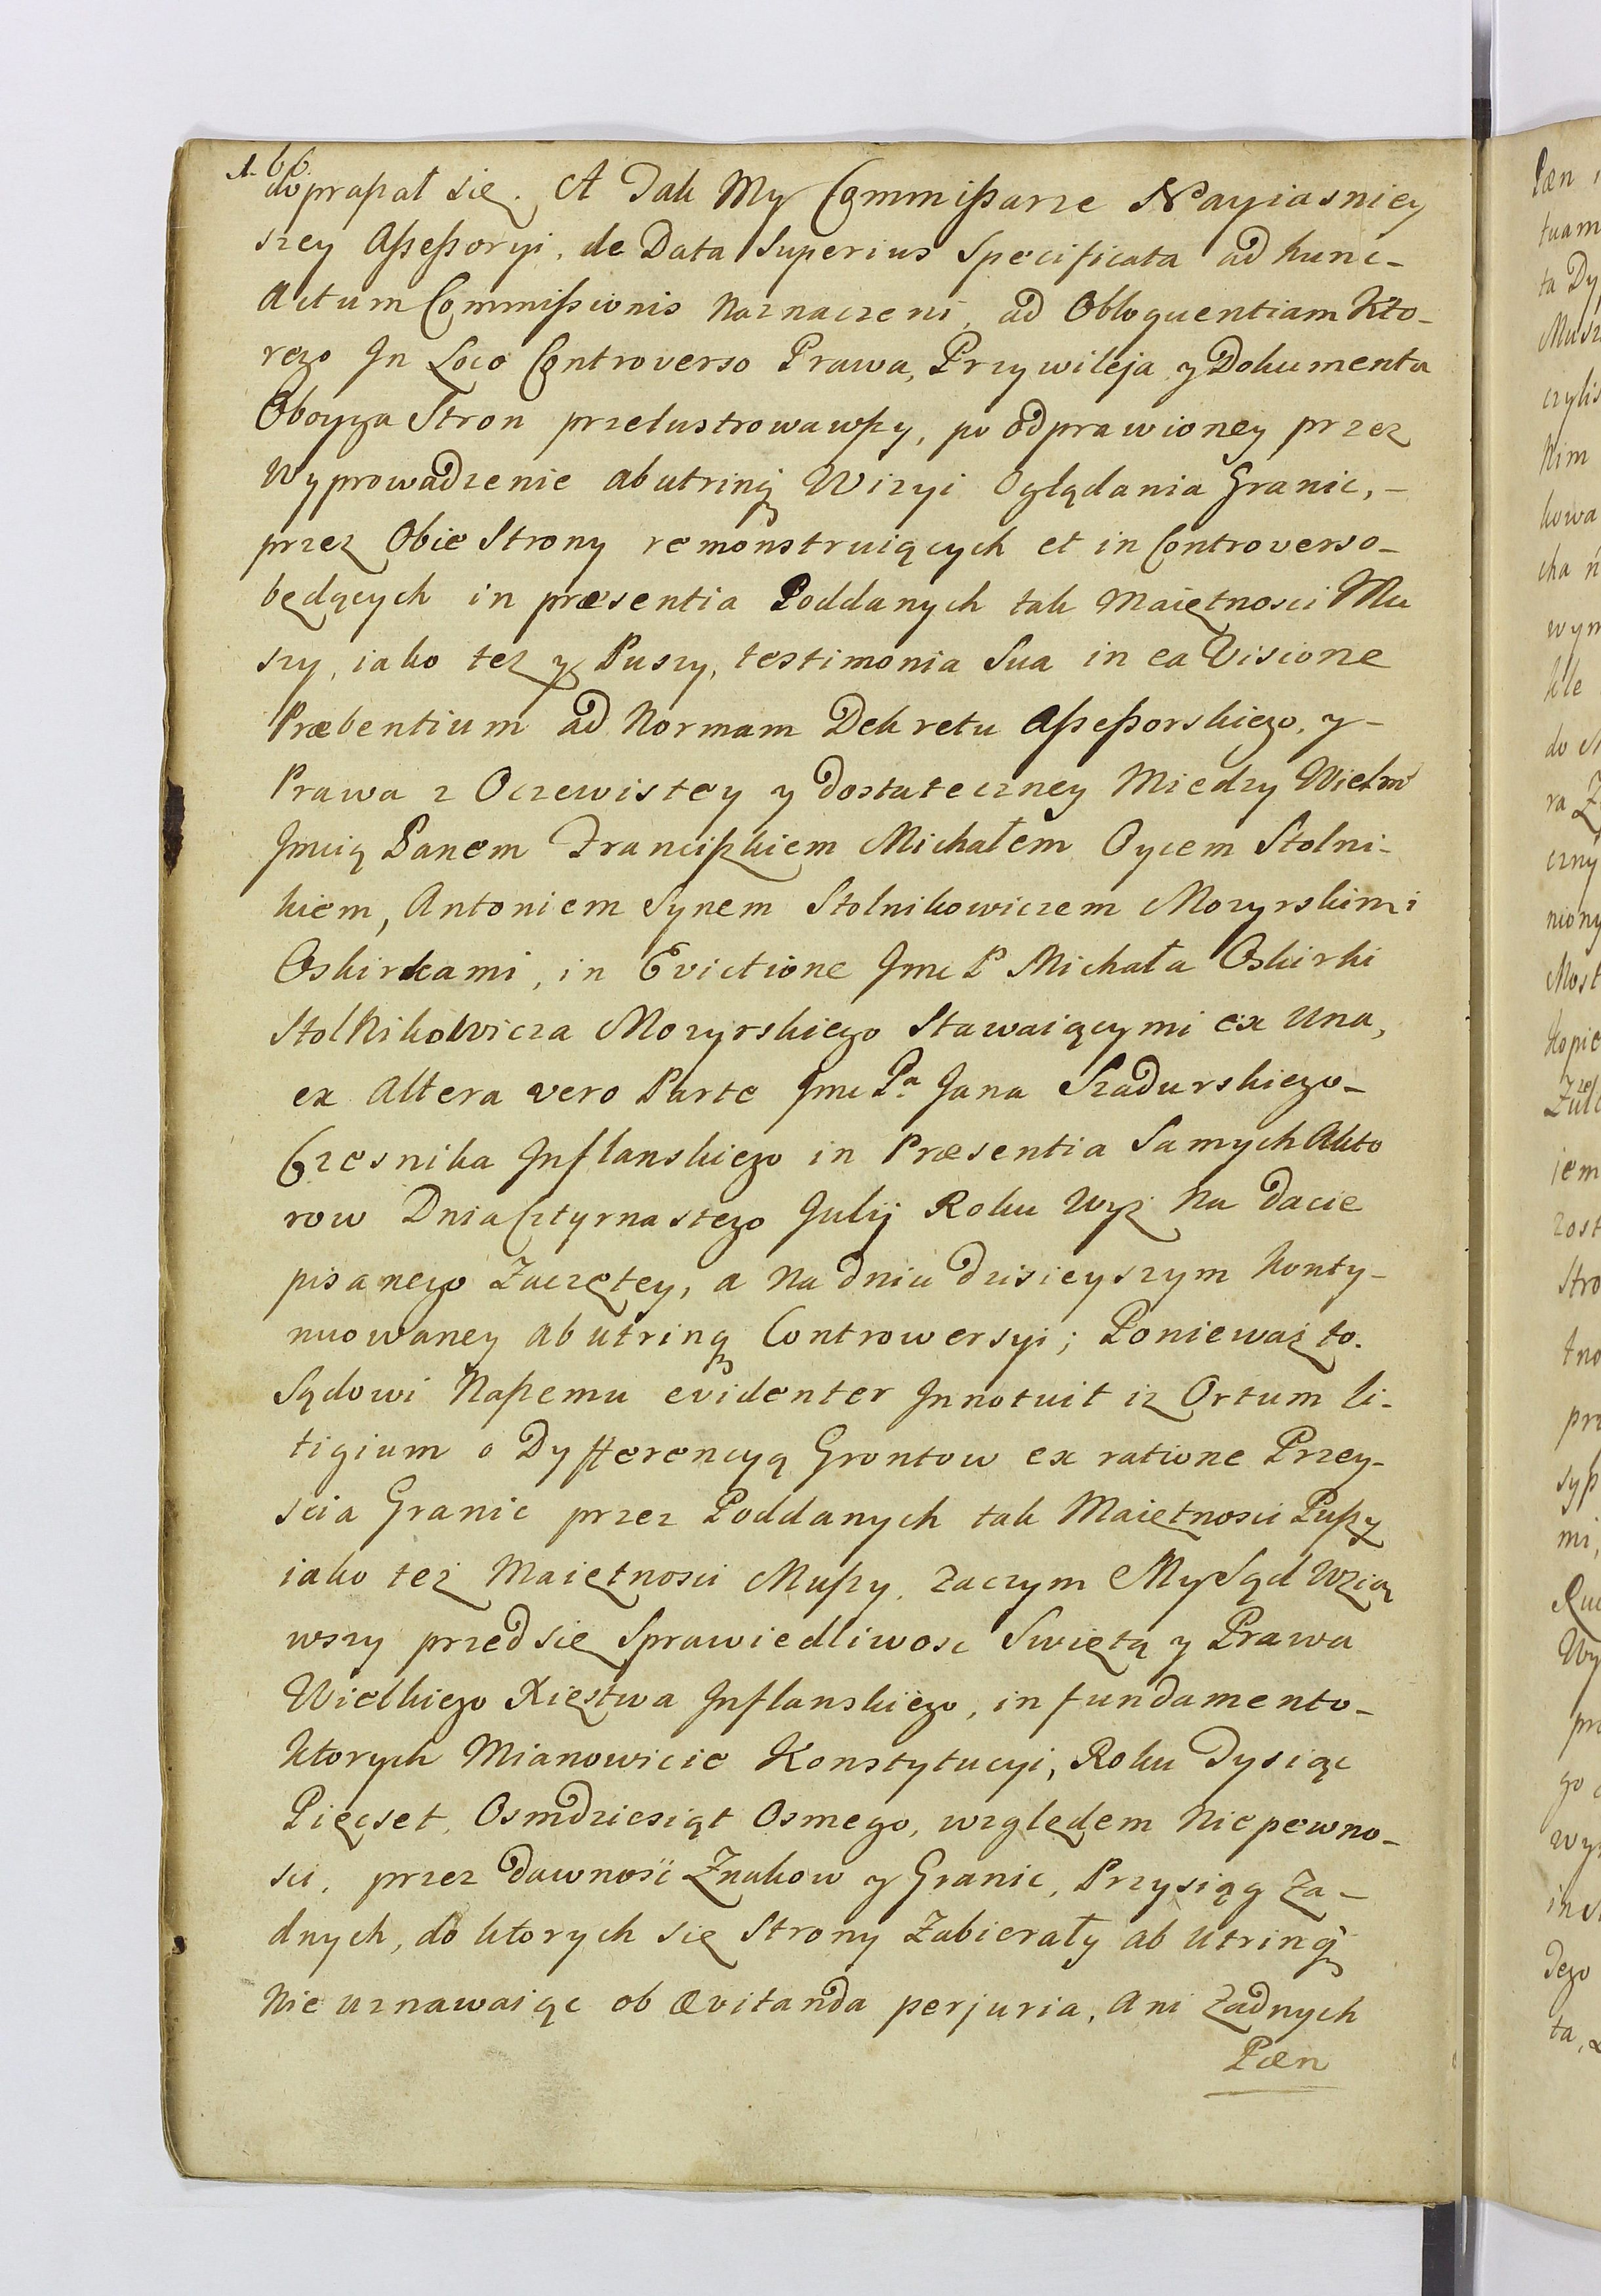 166.
dopraszał się. A Tak My Commissarze Nayiasniey
szey Assessoryi, de Data Superius Specificata ad hunc-
Actum Commissionis Naznaczeni, ad Obloquentiam Kto-
rego In Loco Controverso Prawa, Przywileja y Dokumenta
Oboyga Stron przelustrowawszy, po odprawioney przez
Wyprowadzenie ab utrinq Wizyi Oglądania Granic, -
przez Obie Strony remonstruiących et in Controverso-
będących in præsentia Poddanych tak Maiętnosci Mu
szy, iako tez y Puszy, testimonia Sua in ea Visione
Præbentium ad Normam Dekretu Assessorskiego, y-
Prawa z Oczewistey y dostateczney Miedzy Wielm
Jmcią Panem Franciszkiem Michałem Oycem Stolni-
kiem, Antoniem Synem Stolnikowiczem Mozyrskimi
Oskirkami, in Evictione Jmc P Michała Oskirki
Stolnikowicza Mozyrskiego Stawaiącymi ex Una,
ex Altera vero Parte Jmc Pa Jana Szadurskiego-
Czesnika Inflanskiego in Præsentia Samych Akto
row Dnia Cztyrnastego Julij Roku Wyż Na dacie
pisanego Zaczętey, a Na dniu dzisieyszym konty-
nuowaney ab utrinq Controwersyi; Ponieważ to.
Sądowi Naszemu evidenter Innotuit iz Ortum li-
tigium o Dyfferencyą Grontow ex ratione Przey-
scia Granic przez Poddanych tak Maiętnosci Puszy
iako też Maiętnosci Muszy, zaczym My Sąd Wzią
wszy przed się Sprawiedliwosc Swiętą y Prawa
Wielkiego Xięstwa Inflanskiego, in fundamento-
ktorych Mianowicie Konstytucyi, Roku Tysiąc
Pięcset, Osmdziesiąt Osmego, względem Niepewno-
sci, przez dawność Znakow y Granic, Przysiąg Ża-
dnych, do ktorych się Strony Zabierały ab utrinq
Nie uznawaiąc ob ævitanda perjuria, Ani Żadnych
Pæn